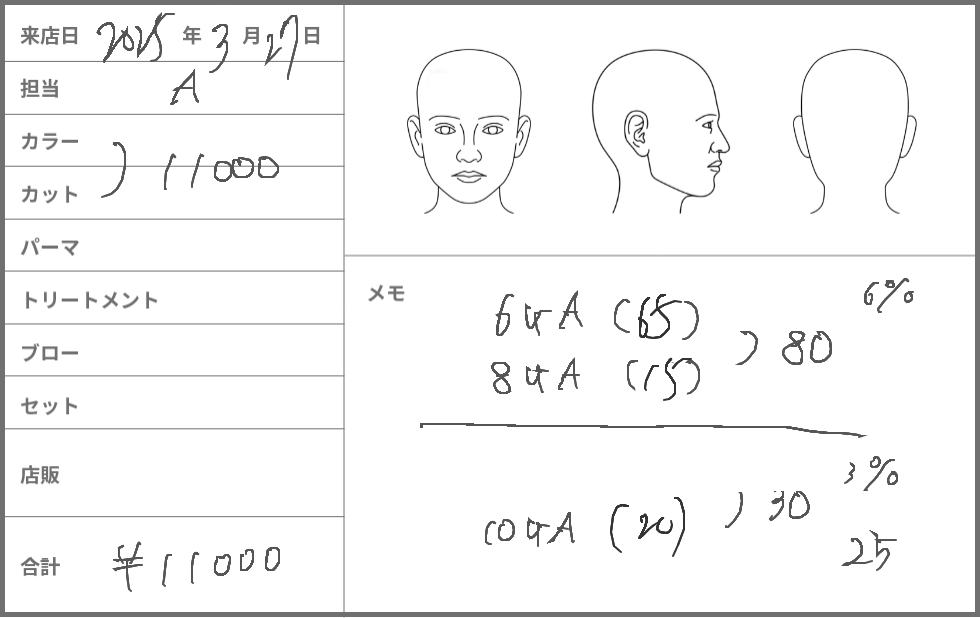 来店日 2025 年 3 月 27 日
担当 A
カラー
カット ) 11000
パーマ
トリートメント
ブロー
セット
店販
合計 ¥11000
メモ
6%
6GrA (65)
8GrA (15) ) 80
3%
10GrA (20) ) 30
25